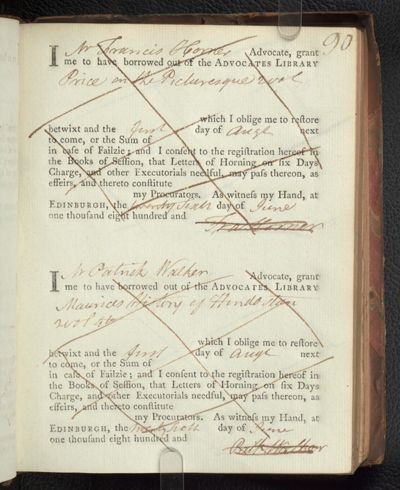 90
I Mr Francis Horner Advocate, grant
me to have borrowed out of the ADVOCATES LIBRARY
Price on the Picturesque 2 vol
which I oblige me to reſtore
betwixt and the first day of Augt next
to come, or the Sum of
in caſe of Failzie; and I conſent to the regiſtration hereof in
the Books of Seſſion, that Letters of Horning on ſix Days
Charge, and other Executorials needful, may paſs thereon, as
effeirs, and thereto conſtitute
my Procurators. As witneſs my Hand, at
EDINBURGH, the twenty sixth day of June
one thouſand eight hundred and
Fra Horner
I Mr Patrick Walker Advocate, grant
me to have borrowed out of the ADVOCATES LIBRARY
Maurices History of Hindostan
2 vol 4to
which I oblige me to reſtore
betwixt and the first day of Augt next
to come, or the Sum of
in caſe of Failzie; and I conſent to the regiſtration hereof in
the Books of Seſſion, that Letters of Horning on ſix Days
Charge, and other Executorials needful, may paſs thereon, as
effeirs, and thereto conſtitute
my Procurators. As witneſs my Hand, at
EDINBURGH, the day of June
one thouſand eight hundred and
Walker